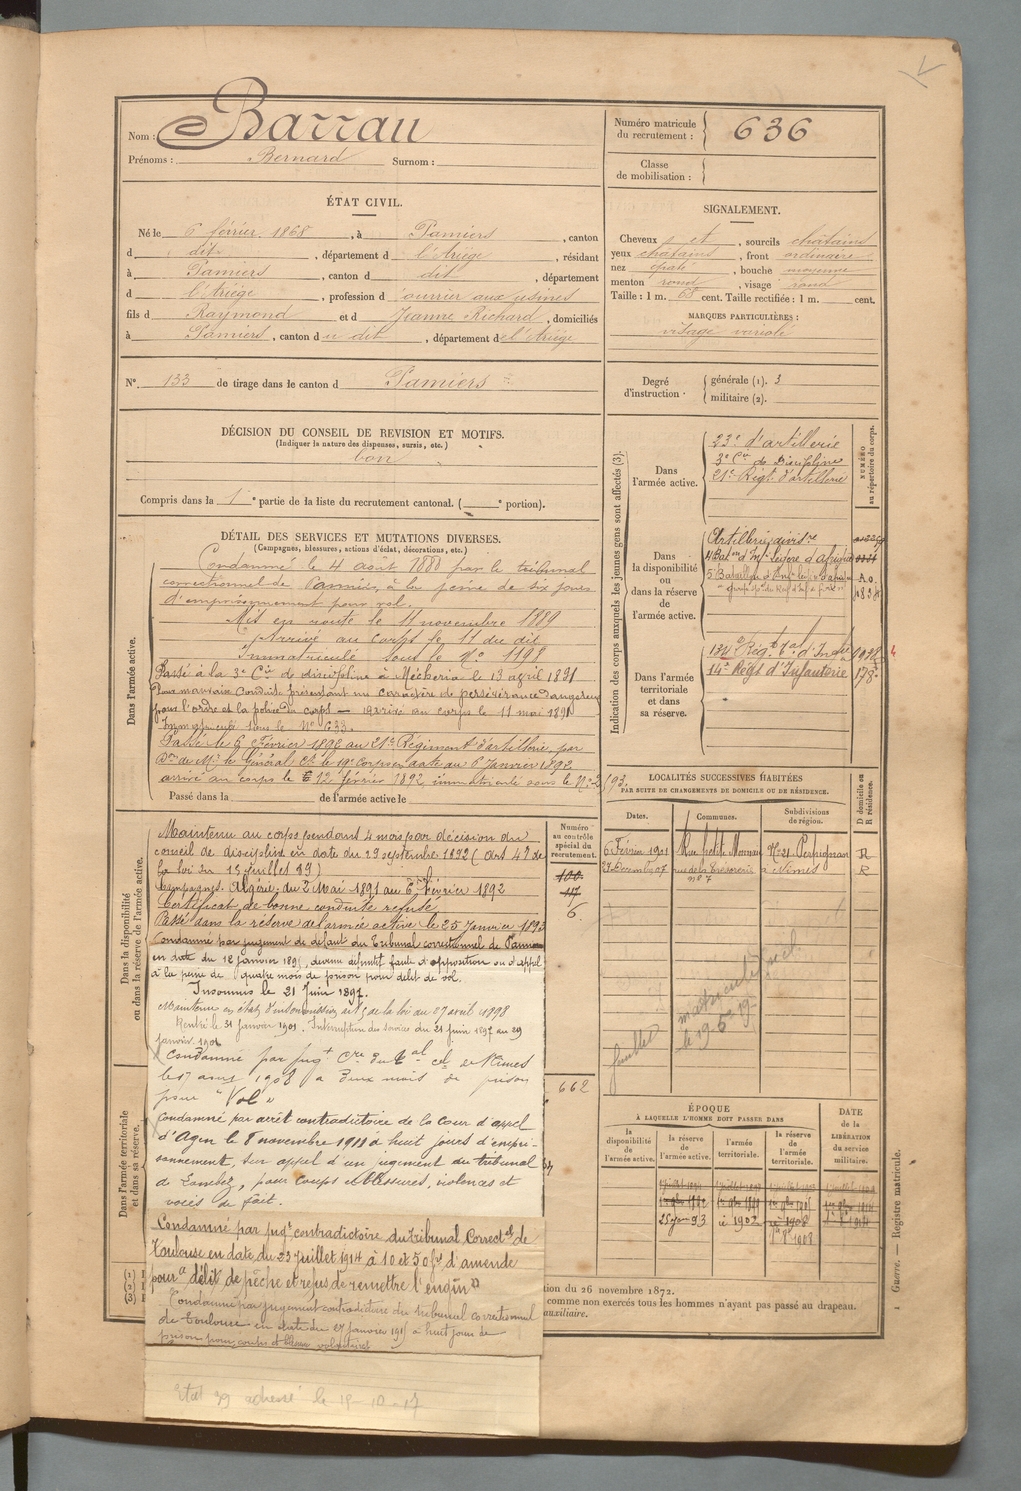 Nom : Barrau
Prénoms : Bernard Surnom :
ÉTAT CIVIL.
Né le 6 février 1868, à Pamiers, canton
d dit, département d l'Ariège, résidant
à Pamiers, canton d dit, département
d l'Ariège, profession d'ouvrier aux usines
fils d Raymond et d Jeanne Richard, domiciliés
à Pamiers, canton du dit, département de l'Ariège
N° 133 de tirage dans le canton d Pamiers
DÉCISION DU CONSEIL DE REVISION ET MOTIFS.
(Indiquer la nature des dispenses, sursis, etc.)
bon
Compris dans la 1e partie de la liste du recrutement cantonal. ( e portion).
DÉTAIL DES SERVICES ET MUTATIONS DIVERSES.
(Campagnes, blessures, actions d'éclat, décorations, etc.)
Dans l'armée active.
Condamné le 4 août 1880 par le tribunal
correctionnel de Pamiers, à la peine de six jours
d'emprisonnement pour vol.
Mis en route le 11 novembre 1889
Arrivé au corps le 11 du dit
Immatriculé sous le No 1198
Passé à la 3e Cie de discipline à Méchéria le 13 avril 1891
Pour mauvaise conduite présentant un caractère de persévérance dangereux
pour l'ordre et la police du corps — arrivé au corps le 11 mai 1891
Immatriculé sous le No 633.
Passé le 6 Février 1892 au 21e Régiment d'artillerie, par
Don de Mr le Général Ct le 19e Corps en date du 6 Janvier 1892
arrivé au corps le 12 février 1892, immatriculé sous le No 2193.
Passé dans la de l'armée active le
Dans la disponibilité ou dans la réserve de l'armée active.
Numéro au contrôle spécial du recrutement.
100
117
6.
662
Maintenu au corps pendant 4 mois par décision du
conseil de discipline en date du 29 septembre 1892 (Art 47 de
la loi du 15 juillet 89)
Campagnes: Algérie: du 2 Mai 1891 au 6 Février 1892
Certificat de bonne conduite refusé
Passé dans la réserve de l'armée active le 25 Janvier 1893
Condamné par jugement de défaut du Tribunal correctionnel de Pamiers
en date du 12 janvier 1895, devenu définitif faute d'opposition ou d'appel
à la peine de quatre mois de prison pour délit de vol.
Insoumis le 21 Juin 1897.
Maintenu en état d'insoumission art 5 de la loi du 27 avril 1898
Rentré le 31 janvier 1901. Interruption du service du 21 juin 1897 au 29
janvier 1901
Condamné par jugt Cre du Tal cel de Nimes
le 1908 à deux mois de prison
pour "Vol"
Dans l'armée territoriale et dans sa réserve.
Condamné par arrêt contradictoire de la Cour d'appel
d'Agen le 8 novembre 1911 à huit jours d'empri-
sonnement, sur appel d'un jugement du tribunal
de Lombez, pour coups et blessures, violences et
voies de fait.
Condamné par jugt contradictoire du tribunal Correctel de
Toulouse en date du 23 juillet 1914 à 10 et 50 fr d'amende
pour "délit de pêche et refus de remettre l'engin"
Condamné par jugement contradictoire du tribunal correctionnel
de Toulouse en date du 27 janvier 1915 à huit jours de
prison pour coups et blessures volontaires
Etat 39 adressé le 18-10-17
(1)
(2)
(3)
tion du 26 novembre 1872.
comme non exercés tous les hommes n'ayant pas passé au drapeau.
auxiliaire.
Numéro matricule du recrutement : 636
Classe de mobilisation :
SIGNALEMENT.
Cheveux et, sourcils châtains
yeux châtains, front ordinaire
nez épaté, bouche moyenne
menton rond, visage rond
Taille : 1 m. 68 cent. Taille rectifiée : 1 m. cent.
MARQUES PARTICULIÈRES :
visage variolé
Degré d'instruction
générale (1). 3
militaire (2).
Indication des corps auxquels les jeunes gens sont affectés (3).
NUMÉRO au répertoire du corps.
Dans l'armée active.
23e d'artillerie
3e Cie de Discipline
21e Régt d'artillerie
Dans la disponibilité ou dans la réserve de l'armée active.
Artillerie divisre
4 Baton d'Inf légère d'Afrique
5e Bataillon d'Infie légère d'Afrique
A 0.
Dans l'armée territoriale et dans sa réserve.
134e Régt tal d'Infie 1098
14e Régt d'Infanterie 178
LOCALITÉS SUCCESSIVES HABITÉES
PAR SUITE DE CHANGEMENTS DE DOMICILE OU DE RÉSIDENCE.
Dates. Communes. Subdivisions de région. D domicile ou R résidence.
6 Février 1901 Rue petite Monnaie No 21 Perpignan R
27 Décemb 07 rue de la Trésorerie no 7 à Nimes R
feuillet matricule
le 19-5-19
ÉPOQUE
À LAQUELLE L'HOMME DOIT PASSER DANS
DATE de la LIBÉRATION du service militaire.
la disponibilité de l'armée active.
la réserve de l'armée active.
l'armée territoriale.
la réserve de l'armée territoriale.
25 Janv 93
1er 8bre 1908
1 Guerre. — Registre matricule.